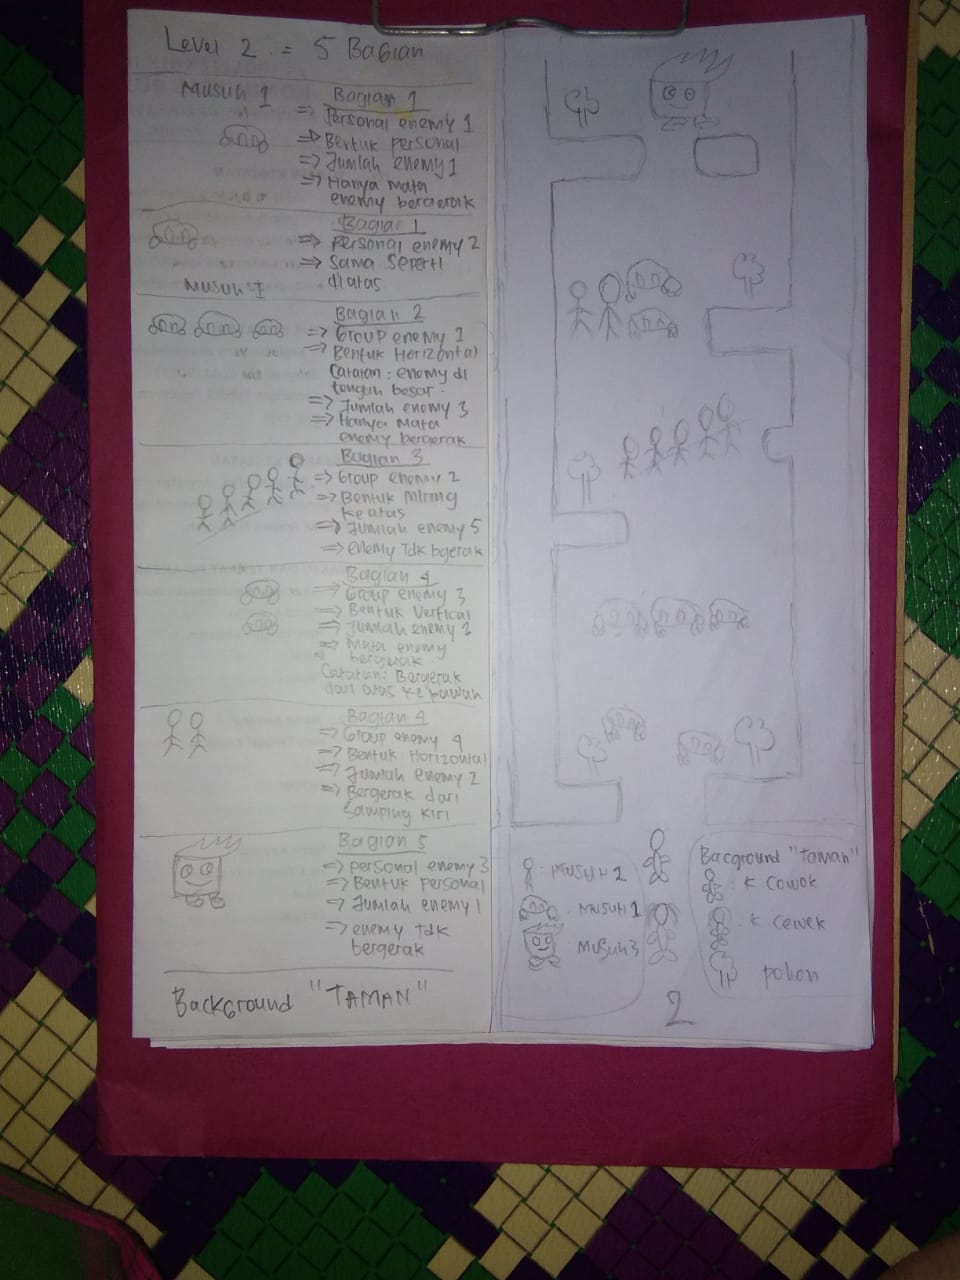 Level 2 = 5 Bagian
Musuh 1
Bagian 1
⇒ Personal enemy 1
⇒ Bentuk personal
⇒ Jumlah enemy 1
⇒ Hanya Mata
enemy bergerak
Bagian 1
⇒ Personal enemy 2
⇒ Sama seperti
diatas
Musuh I
Bagian 2
⇒ Group enemy 1
⇒ Bentuk Horizontal
Catatan : enemy di
tengah besar.
⇒ Jumlah enemy 3
⇒ Hanya Mata
enemy bergerak
Bagian 3
⇒ Group enemy 2
⇒ Bentuk Miring
keatas
⇒ Jumlah enemy 5
⇒ enemy tdk bgerak
Bagian 4
⇒ Group enemy 3
⇒ Bentuk Vertical
⇒ Jumlah enemy 2
⇒ Mata enemy
bergerak.
Catatan: Bergerak
dari atas ke bawah
Bagian 4
⇒ Group enemy 4
⇒ Bentuk Horizontal
⇒ Jumlah enemy 2
⇒ Bergerak dari
Samping kiri
Bagian 5
⇒ personal enemy 3
⇒ Bentuk personal
⇒ Jumlah enemy 1
⇒ enemy tdk
bergerak
Background "TAMAN"
. MUSUH 2
. MUSUH 1
MUSUH 3
Bacground "Taman"
: K Cowok
: K Cewek
pohon
2